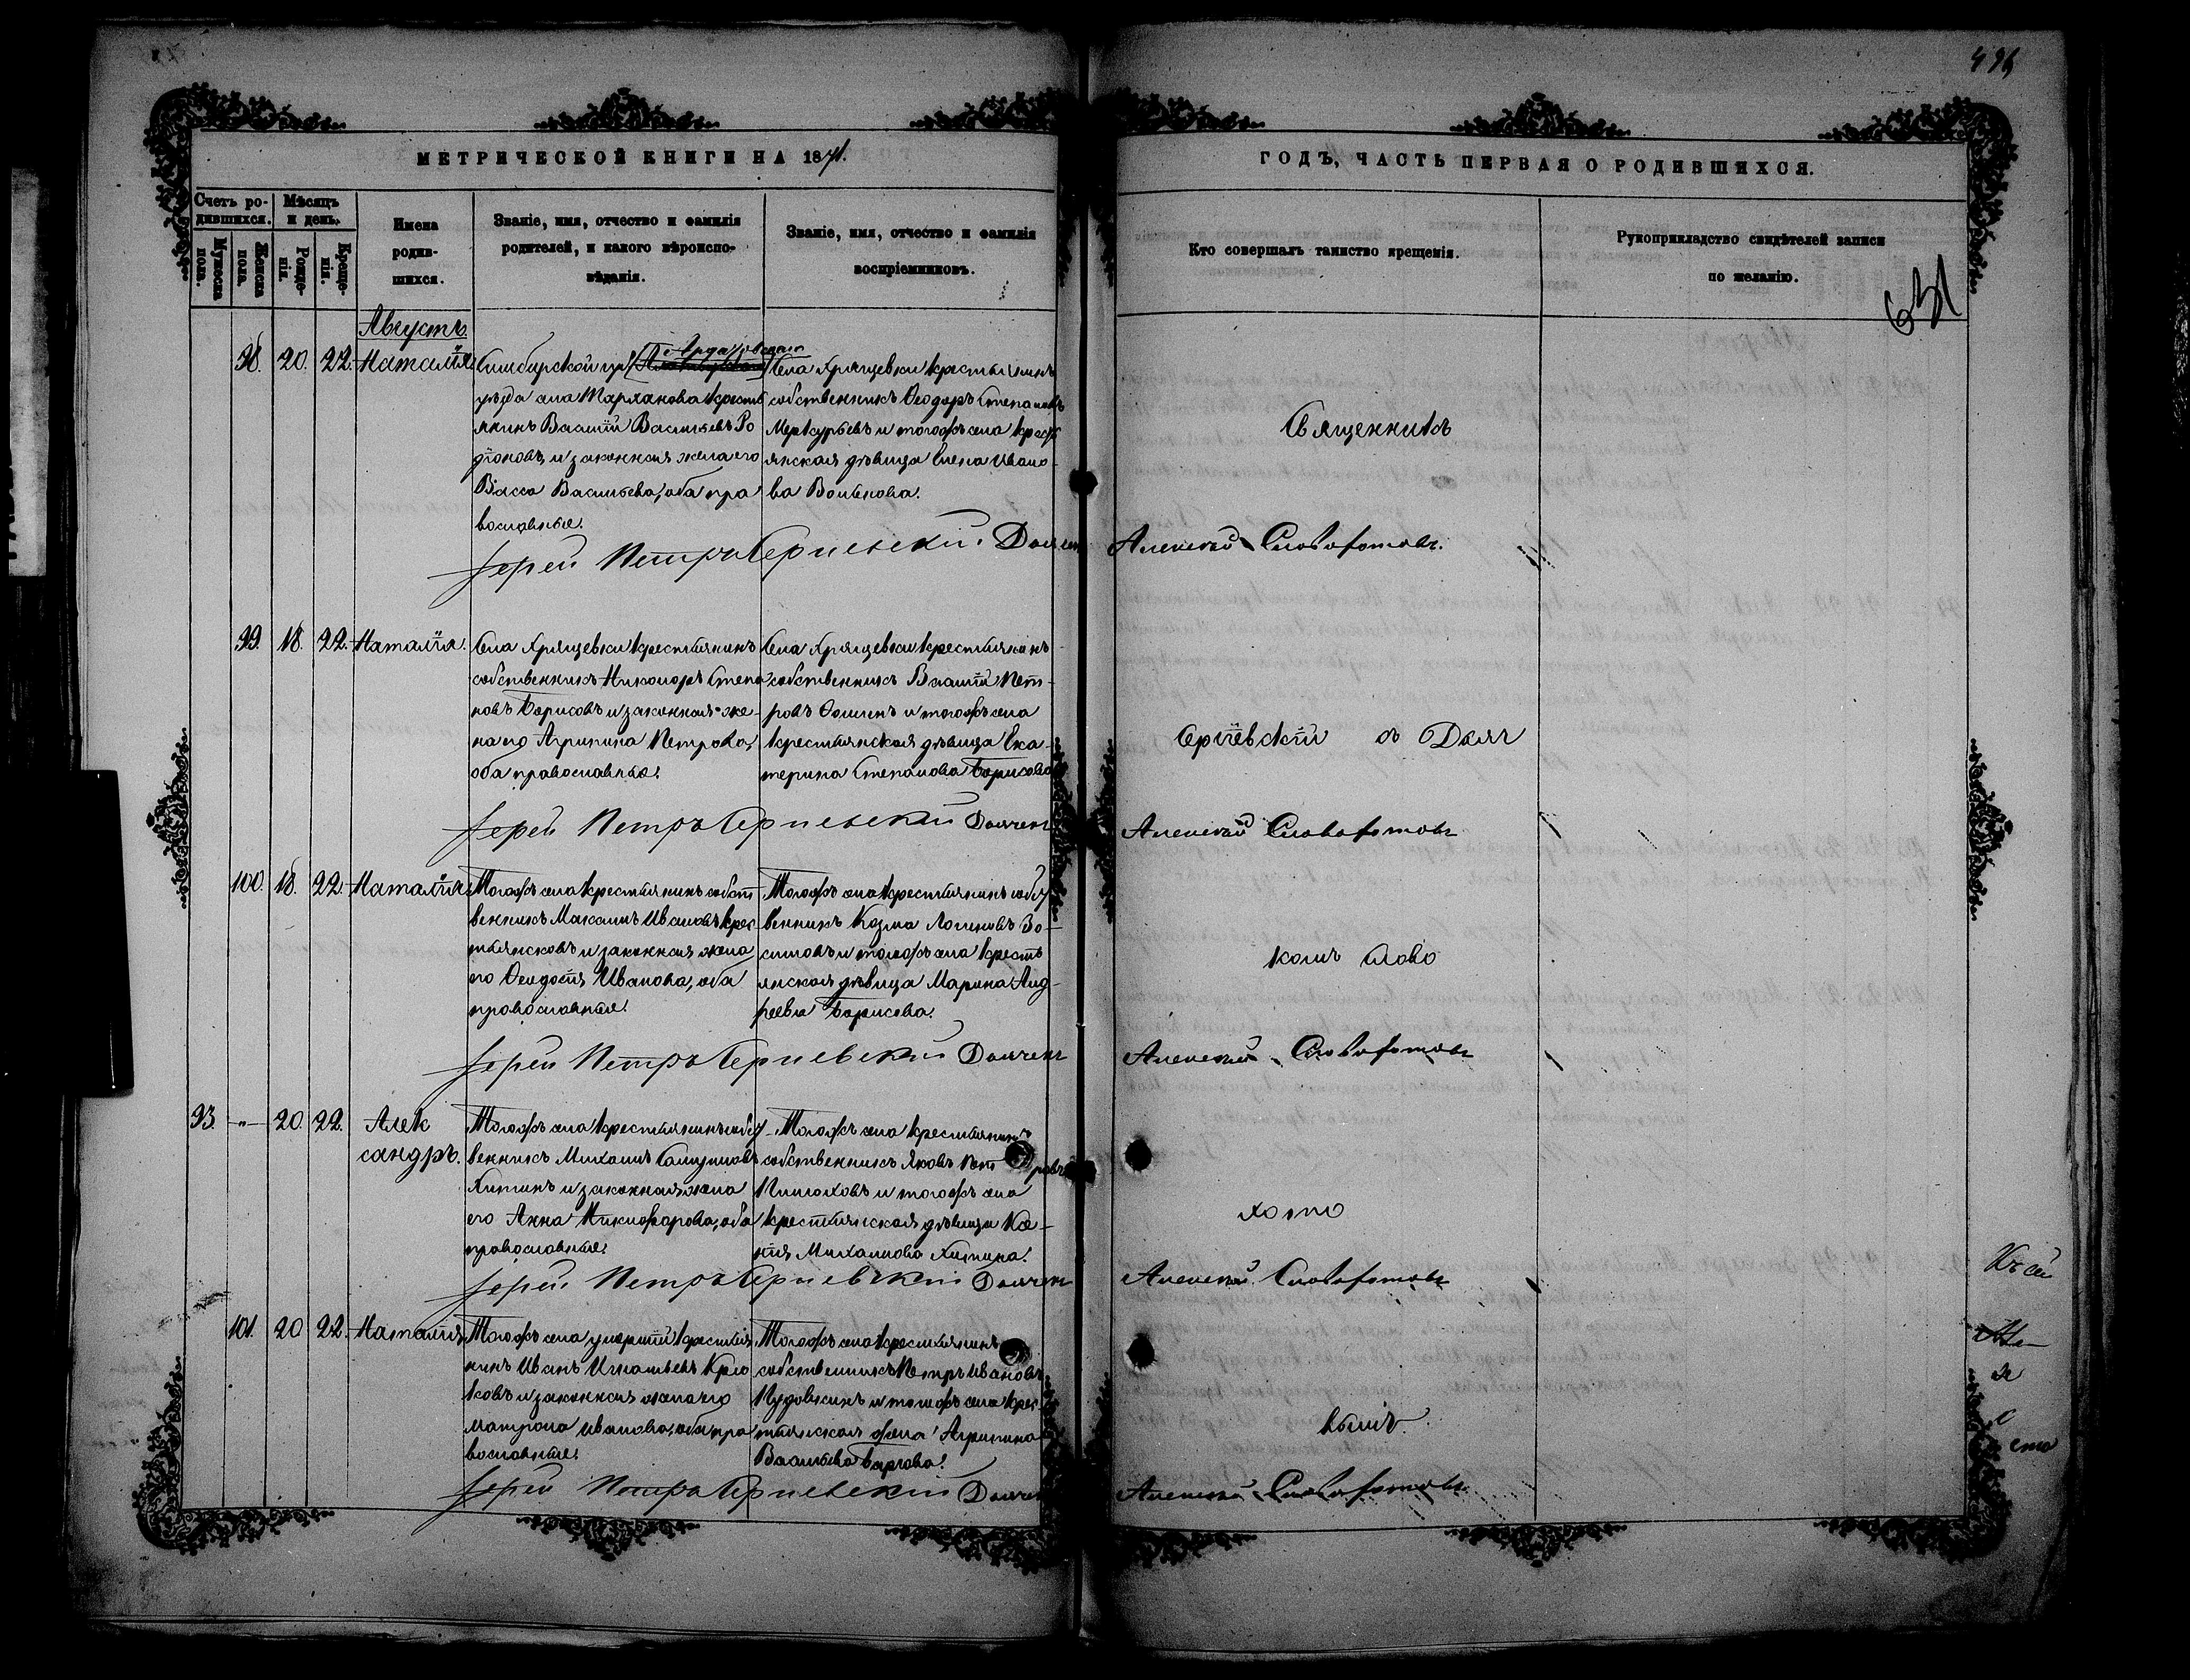 496
МЕТРИЧЕСКОЙ КНИГИ НА 1871.
ГОДЪ, ЧАСТЬ ПЕРВАЯ О РОДИВШИХСЯ.
Счетъ ро-
дившихся.
Мужеска
пола.
Женска
пола.
Мѣсяцъ
и день.
Рожде-
нія.
Креще-
нія.
Имена
родив-
шихся.
Званіе, имя, отчество и фамилія
родителей, и какого вѣроиспо-
вѣданія.
Званіе, имя, отчество и фамилія
воспріемниковъ.
Кто совершалъ таинство крещенія.
Рукоприкладство свидѣтелей записи
по желанію.
631
Августъ.
98. 20. 22. Наталія
Симбирской гу. Ардатовскаго
уѣзда села Тарханова кресть
янинъ Василій Васильевъ Ро
діоновъ и законная жена его
Васса Васильева, оба пра
вославные.
Села Хрящевки крестьянинъ
собственникъ Ѳеодоръ Степановъ
Меркурьевъ и тогожъ села кресть
янская дѣвица Елена Ивано-
ва Волькова.
Священникъ
Іерей Петръ Сергіевскій. Дьячекъ
Алексей Словохотовъ.
99. 18. 22. Наталія.
Села Хрящевки крестьянинъ
собственникъ Никаноръ Степа
новъ Борисовъ и законная же-
на его Агрипина Петрова,
оба православные.
Села Хрящевки крестьянинъ
собственникъ Василій Пет-
ровъ Ѳоминъ и тогожъ села
крестьянская дѣвица Ека-
терина Степанова Борисова
Сергіевскій съ Дьяч
Іерей Петръ Сергіевскій Дьячекъ
Алексей Словохотовъ
100. 18. 22. Наталія
Тогожъ села крестьянинъ собст
венникъ Максимъ Ивановъ Крес
тьянсковъ и законная жена
его Ѳеодосія Иванова, оба
православные.
Тогожъ села крестьянинъ собст
венникъ Козма Логиновъ Зо-
симовъ и тогожъ села кресть
янская дѣвица Марина Анд-
реева Борисова.
комъ Слово
Іерей Петръ Сергіевскій Дьячекъ
Алексей Словохотовъ
93. -"- 20. 22. Алек
сандръ.
Тогожъ села крестьянинъ собст
венникъ Михаилъ
Хитинъ и законная жена
его Анна Никифорова, оба
православные.
Тогожъ села крестьянинъ
собственникъ Яковъ Пет ровъ
и тогожъ села
крестьянская дѣвица Ксе-
нія Михаилова Хитина.
хото
Іерей Петръ Сергіевскій Дьячекъ
Алексей Словохотовъ
101. 20 22. Наталія
Тогожъ села умершій крестья
нинъ Иванъ Игнатьевъ Крю
ковъ и законная жена его
Матрона Иванова, оба пра
вославные.
Тогожъ села крестьянинъ
собственникъ Петръ Ивановъ
Пудовкинъ и тогожъ села крес
тьянская жена Агрипина
Васильева
вымъ.
Іерей Петръ Сергіевскій Дьячекъ
Алексей Словохотовъ.